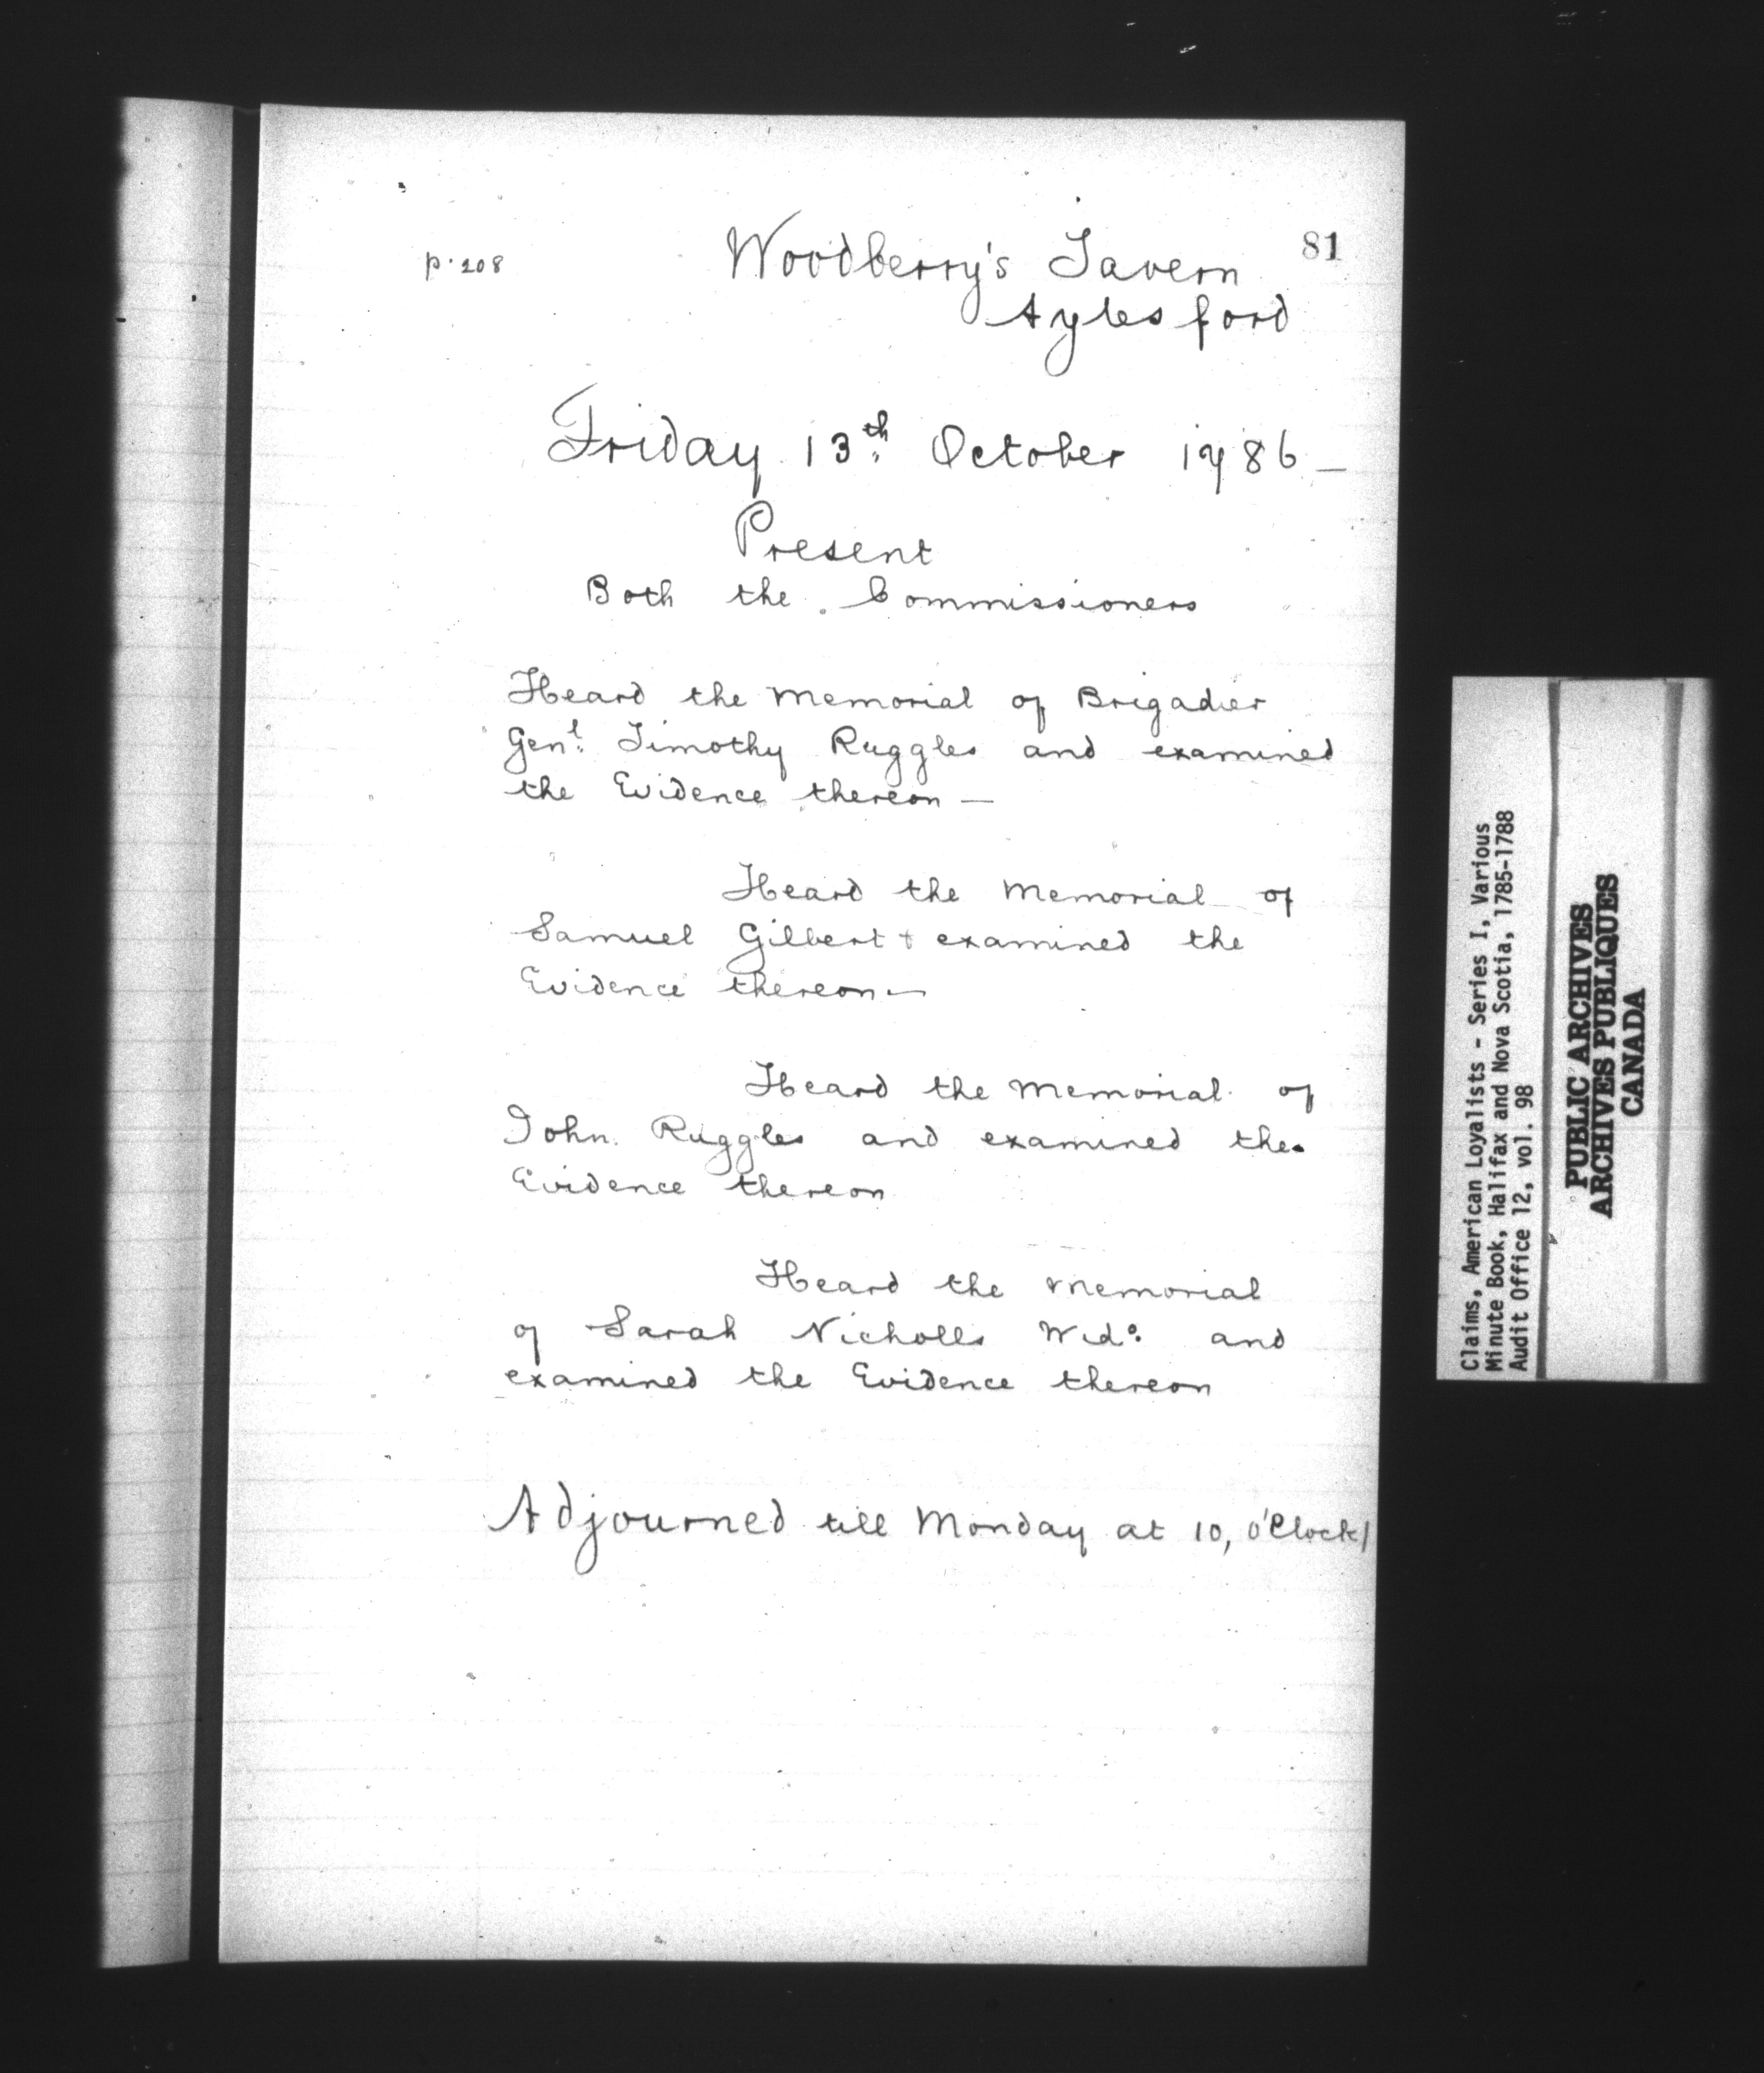 81
p. 208
Woodberry's Tavern
Aylesford
Friday 13th October 1786 —
Present
Both the Commissioners
Heard the Memorial of Brigadier
Genl. Timothy Ruggles and examined
the Evidence thereon —
Heard the Memorial of
Samuel Gilbert + examined the
Evidence thereon —
Heard the Memorial of
John Ruggles and examined the
Evidence thereon
Heard the Memorial
of Sarah Nicholls Wido. and
examined the Evidence thereon
Adjourned till Monday at 10, o'Clock/
Claims, American Loyalists - Series I, Various
Minute Book, Halifax and Nova Scotia, 1785-1788
Audit Office 12, vol. 98
PUBLIC ARCHIVES
ARCHIVES PUBLIQUES
CANADA